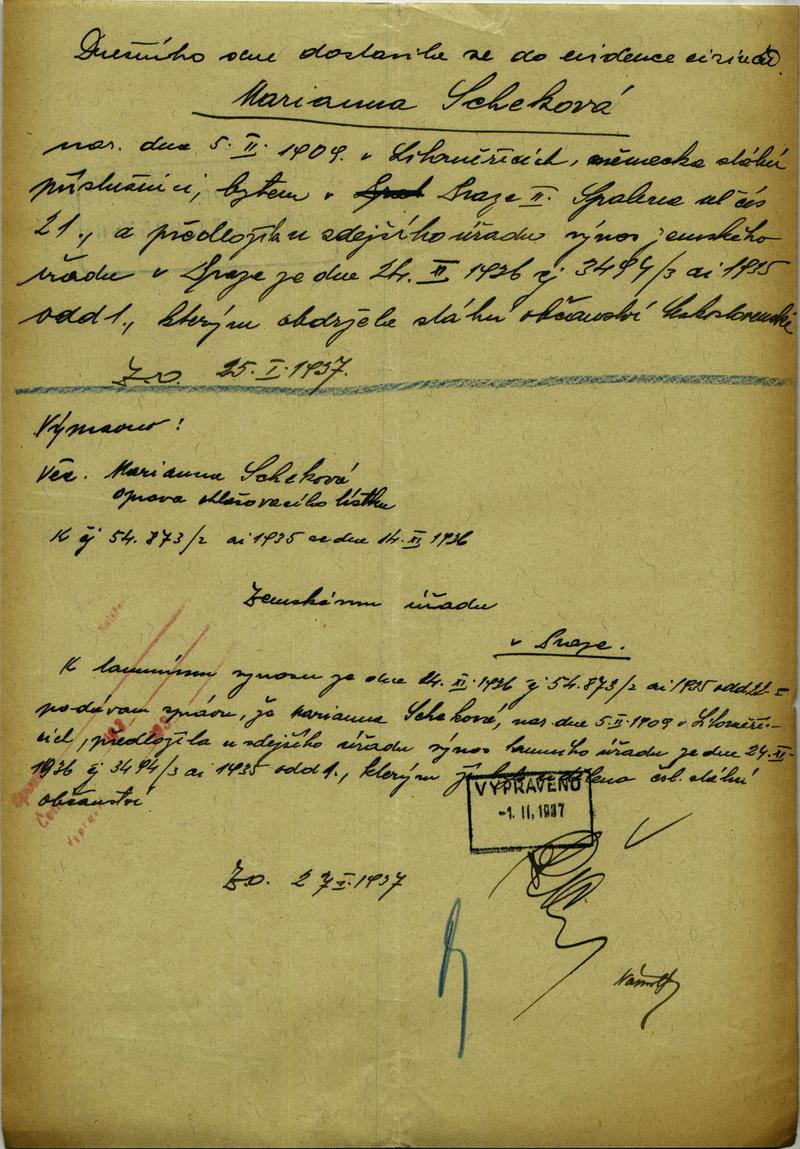 Dnešního dne dostavila se do evidence cizinců
Marianna Scheková
nar. dne 5. II. 1909. v Litoměřicích, německá státní
příslušnice, bytem v Praze II. Spálená ul čís
21., a předložila u zdejšího úřadu výnos zemského
úřadu v Praze ze dne 24. II 1936 čj 3494/3 ai 1935
odd 1., kterým obdržela státní občanství československé
25. I. 1937.
Vypraveno:
Věc. Marianna Scheková
oprava ohlašovacího lístku
K čj 54.873/2 ai 1935 ze dne 14. XI 1936
Zemskému úřadu
v Praze.
K tamnímu výnosu ze dne 14. XI. 1936 čj 54.873/2 ai 1935
podávám zprávu, že Marianna Scheková, nar. dne 5. II. 1909 v Litoměři-
cích, předložila u zdejšího úřadu výnos tamního úřadu ze dne 24. II.
1936 čj 3494/3 ai 1935 odd 1., kterým jí byla udělena čsl. státní
občanství
VYPRAVENO
-1. II. 1937
27. I. 1937